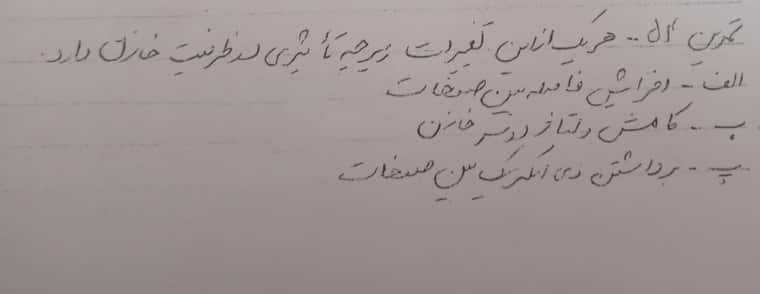 تمرین ۱۵ - هر یک از این تغییرات زیر چه تأثیری در ظرفیت خازن دارد.
الف - افزایش فاصله بین صفحات
ب - کاهش ولتاژ دو سر خازن
پ - برداشتن دی الکتریک بین صفحات